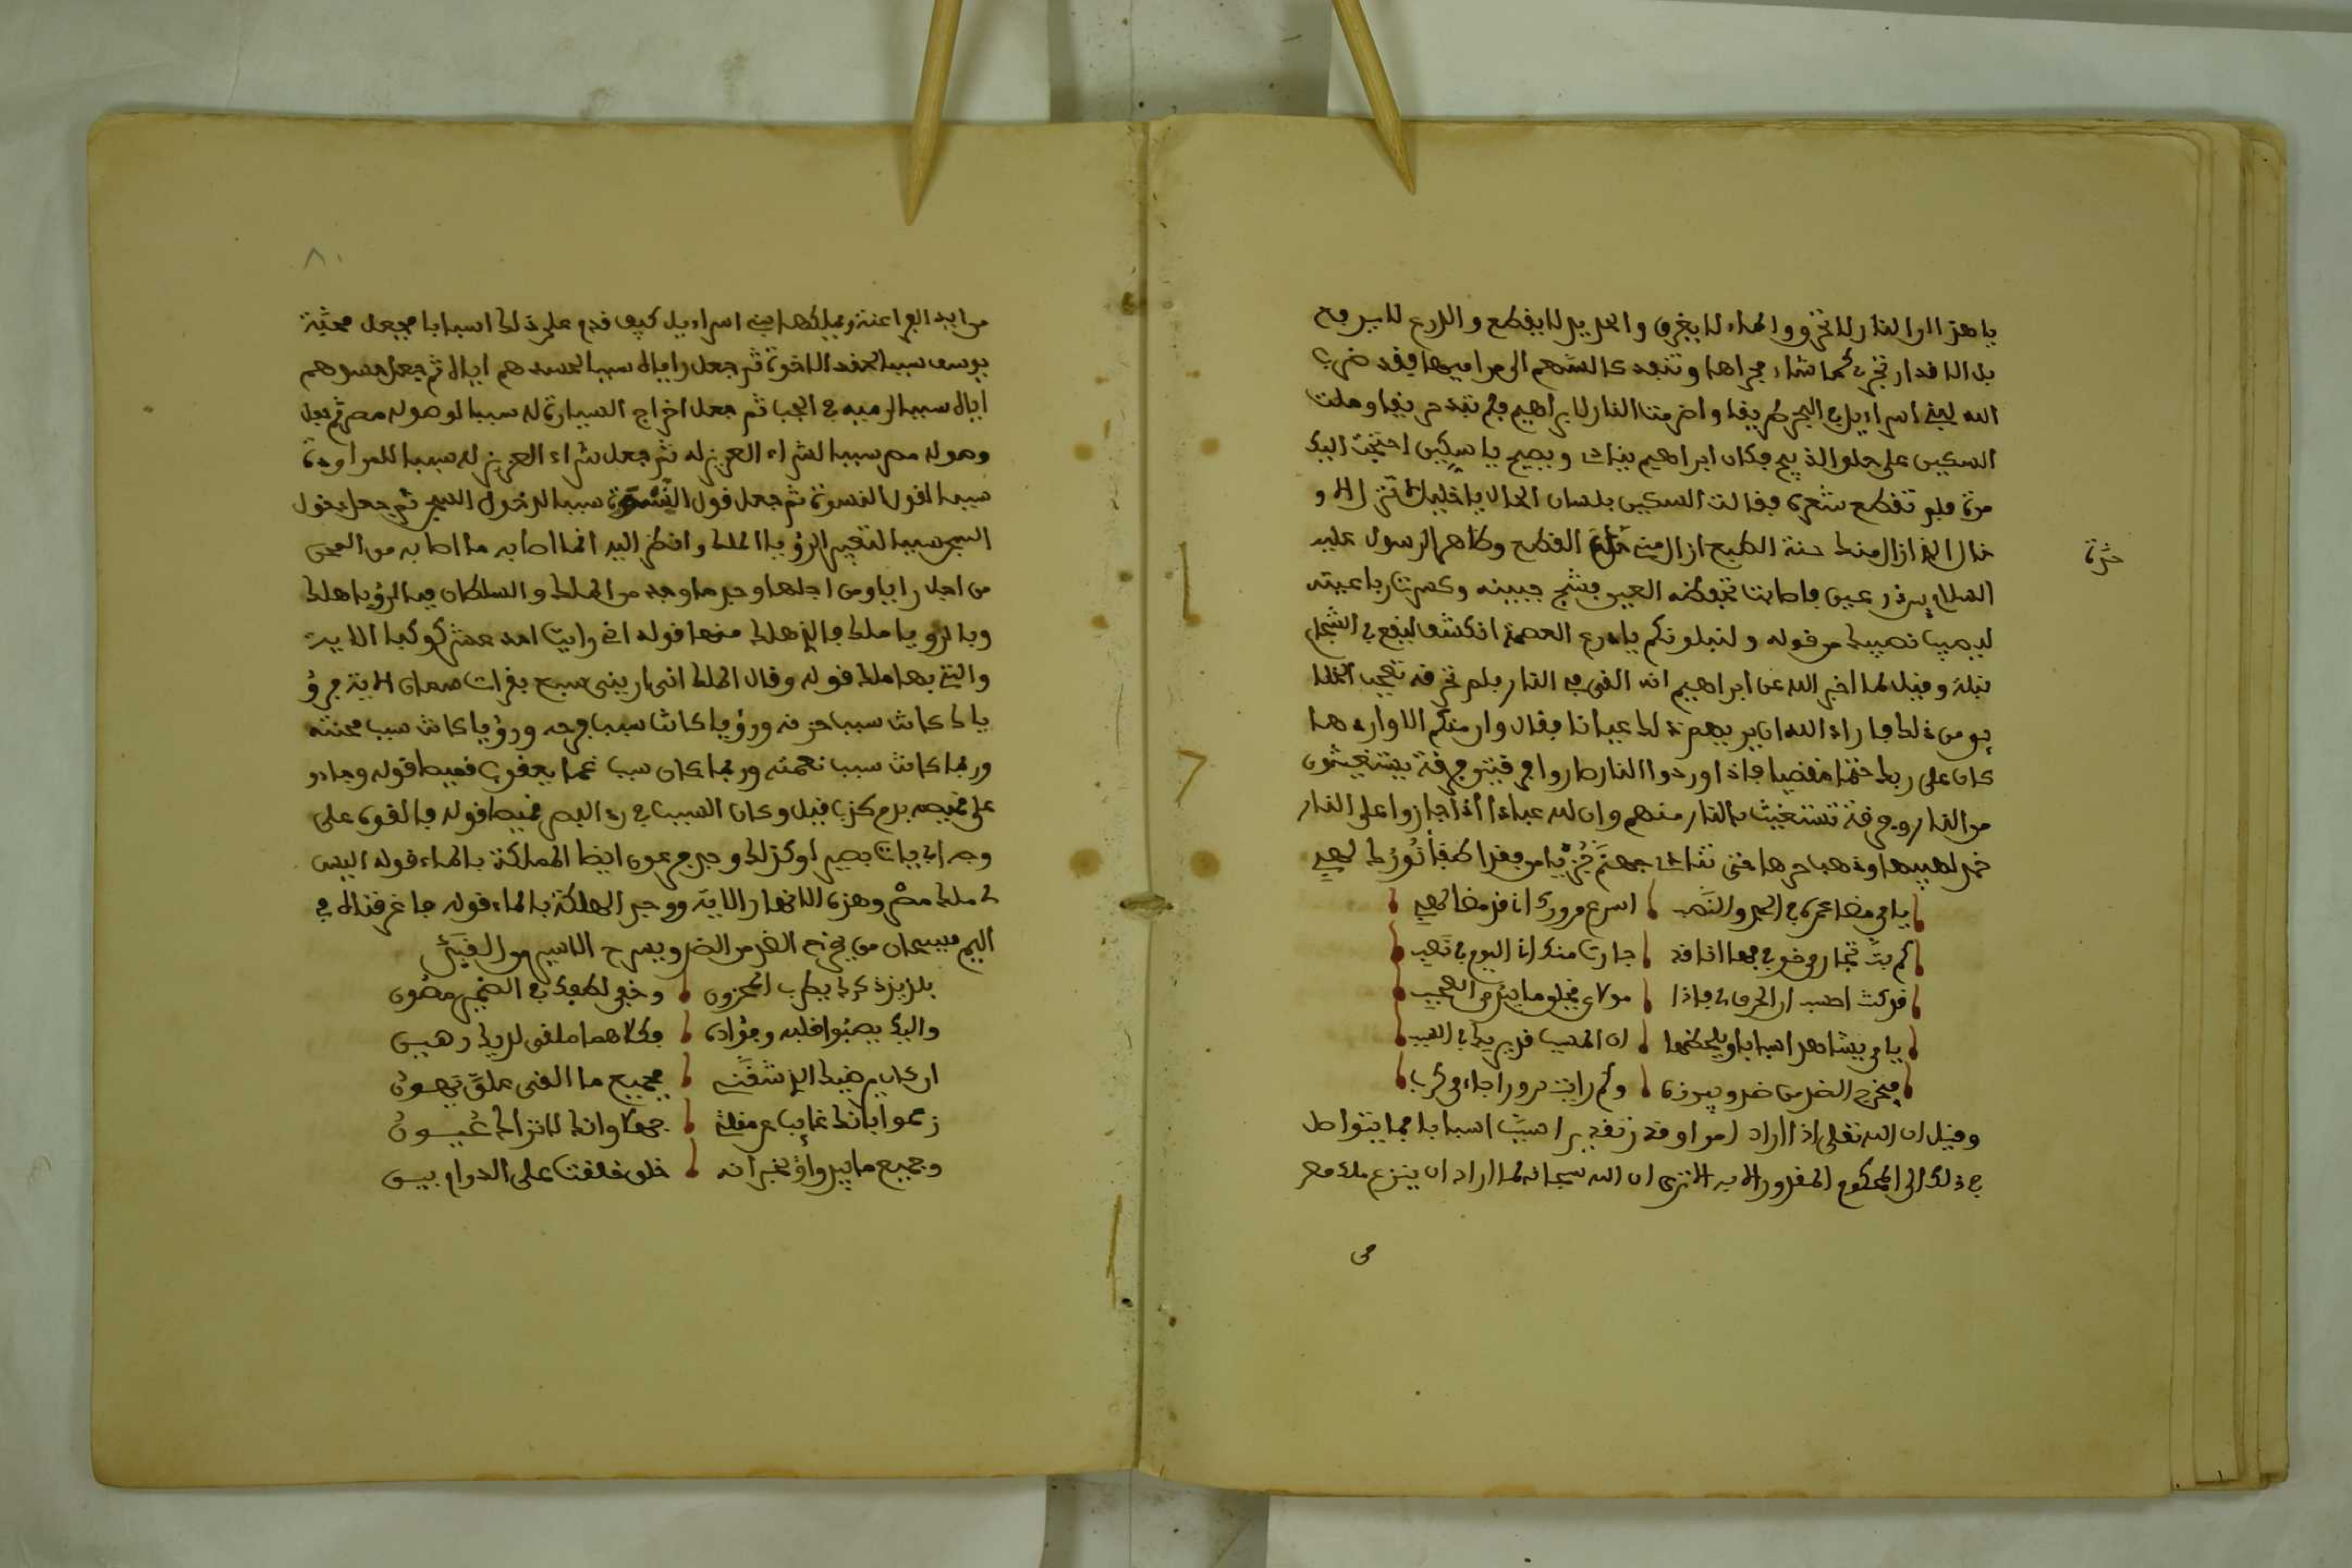 يا هذا ان النار لا تحرق والماء لا يغرق والحديد لا يقطع والدرع لا يرفع
بل الاقدار تجري كما شاء مجراها وتنفد كالسهم الى مراميها فقد ضرب
الله لبني اسراءيل في البحر طريقا واضرمت النار لابراهيم فلم تجد حريقا وملت
السكين على حلق الذبيح فكان ابراهيم ينادي ويصيح يا سكين احتجت اليك
مرة فلم تقطع شعرة فقالت السكين بلسان الحال يا خليل الله
الذي ازال منك حنة الطبع ازال مني حزة القطع وظاهر الرسول عليه
حزة
السلام بين درعين فاصابت تحفظه العين فشج جبينه وكسرت رباعيته
ليصيب نصيبك من قوله ولنبلونكم يا درع العصمة انكشف ليقع في الشجاع
نبلة وقيل لما اخبر الله عن ابراهيم انه القي في النار فلم تحرقه تعجب الخلا
يق من ذلك فاراد الله ان يريهم ذلك عيانا فقال وان منكم الا واردها
كان على ربك حتما مقضيا فاذا اوردوا النار صاروا فرقتين فرقة يستغيثون
من النار وفرقة تستغيث النار منهم وان لله عبادا اذا جازوا على النار
خمد لهيبها وذهب حرها فتنادي جهنم جز يا مومن فقد اطفأ نورك لهبي
يا من مضى عمره في الجد والنصب اسرع مرورك انا قد مضا لهبي
كم بت تجار من خوفي فها انا قد جارت منك انا اليوم في تعب
قد كنت احسب ان الحرق لي فاذا مولاي يخلق ما يبدي من العجب
يا من يشاهد اسبابا ويلحظها ان المسبب قد يبديك في السبب
فيخرج الضر من ضر ويبرزه وكم رايت سرورا جاء من كرب
وقيل ان الله تعلى اذا اراد امرا وقدر تقديرا سبب اسبابا فما يتواصل
في ذلك الى المحكوم المقدور به الا ترى ان الله سبحانه لما اراد ان ينزع ملك مصر
من
٨٠
من ايدي الفراعنة ويملكها بني اسراءيل كيف قدم على ذلك اسبابا فجعل محبة
يوسف سببا لحقد الاخوة ثم جعل رءياه سببا لحسدهم اياه ثم جعل حسدهم
اياه سببا لرميه في الجب ثم جعل اخراج السيارة له سببا لوصوله مصر ثم جعل
وصوله مصر سببا لشراء العزيز له ثم جعل شراء العزيز له سببا للمراودة
سببا لقول النسوة ثم جعل قول النسوة سببا لدخول السجن ثم جعل دخول
السجن سببا لتعبير الرؤيا الملك وانظر اليه انما اصابه ما اصابه من المحن
من اجل رءيا ومن اجلها وجد ما وجد من الملك والسلطان فبالرؤيا هلك
وبالرؤيا ملك فالذي هلك منها قوله اني رايت احد عشر كوكبا الاية
والتي بها ملك قوله وقال الملك اني ارى سبع بقرات سمان الاية فرؤ
يا كانت سبب حزنه ورؤيا كانت سبب فرحه ورؤيا كانت سبب محنته
وربما كانت سبب نعمته وربما كان سبب غم يعقوب قميصا قوله وجاءو
على قميصه بدم كذب قيل وكان السبب في رد البصر قميصا قوله فالقوه على
وجه ابي يات بصيرا وكذلك وجد فرعون ايضا المملكة بالماء قوله اليس
لي ملك مصر وهذه الانهار الاية ووجد الهلكة بالماء قوله فاغرقناه في
اليم فسبحان من يخرج الضر من الضر ويسرح الاسير من القبر
بلذيذ ذكرك يطرب المحزون وخفي لطفك في الضمير مصون
واليك يصبوا قلبه وفؤاده وكلاهما ملقى لديك رهين
ان كان يرضيك الذي شفني فجميع ما القى علي يهون
زعموا بانك غايب عن مقلتي جهلا وانك لا تزال عيون
وجميع ما يبدوا يخبر انه خلق خلقت على الدوام يبين